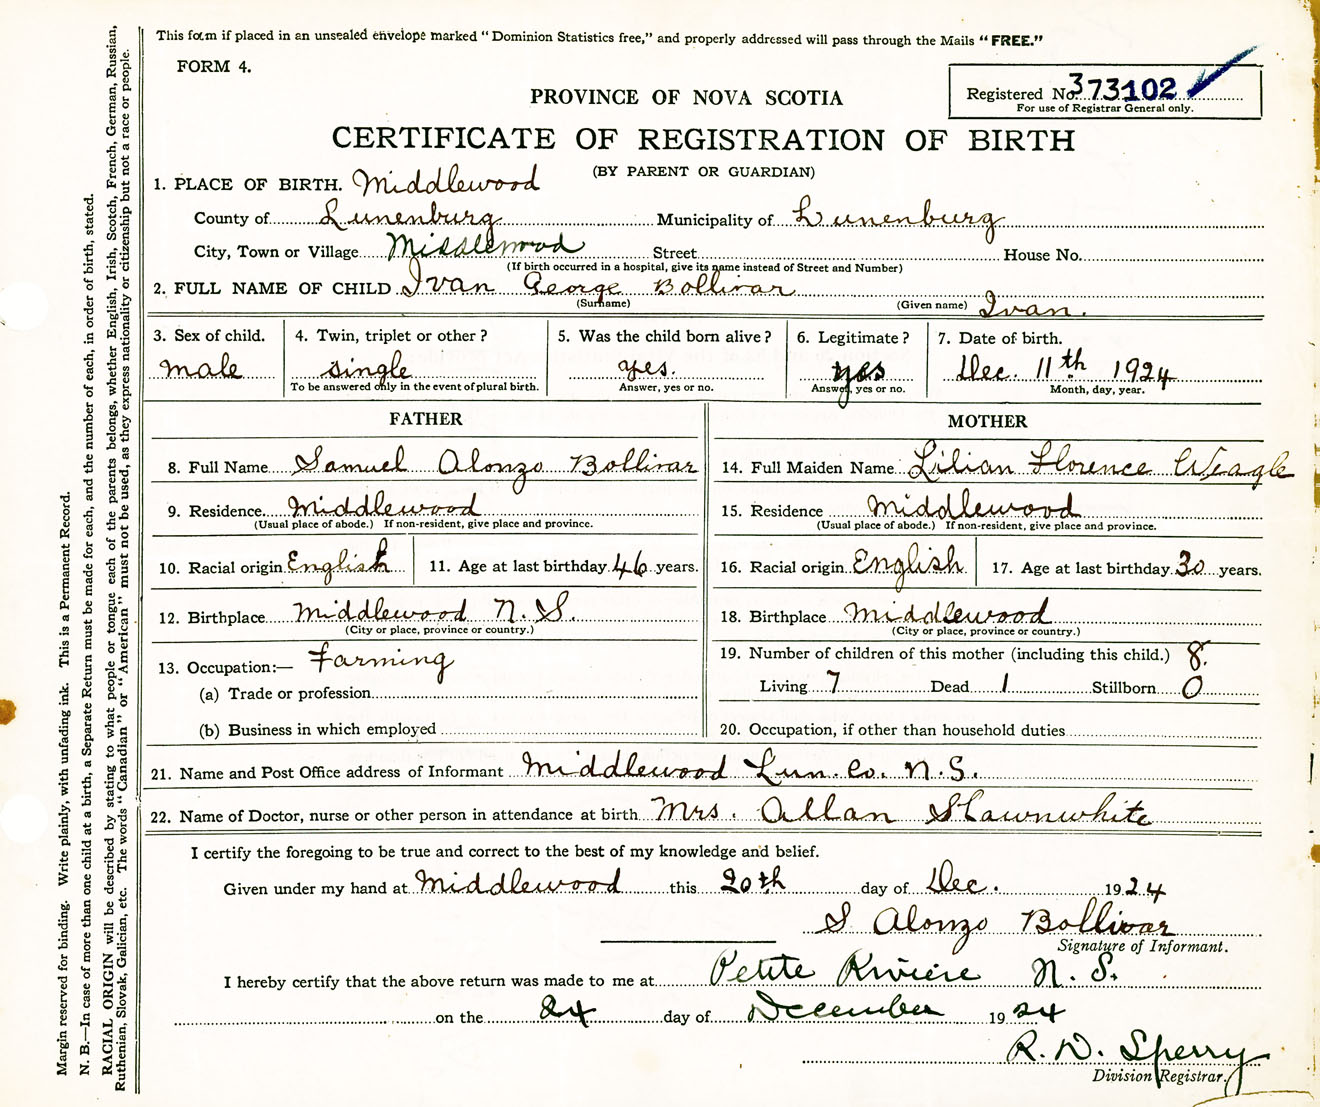 This form if placed in an unsealed envelope marked "Dominion Statistics free," and properly addressed will pass through the Mails "FREE."
FORM 4.
Registered No. 373102
For use of Registrar General only.
PROVINCE OF NOVA SCOTIA
CERTIFICATE OF REGISTRATION OF BIRTH
(BY PARENT OR GUARDIAN)
1. PLACE OF BIRTH. Middlewood
County of Lunenburg Municipality of Lunenburg
City, Town or Village Middlewood Street House No.
(If birth occurred in a hospital, give its name instead of Street and Number)
2. FULL NAME OF CHILD Ivan George Bollivar
(Surname) (Given name) Ivan.
3. Sex of child. 4. Twin, triplet or other? 5. Was the child born alive? 6. Legitimate? 7. Date of birth.
male single yes. yes Dec. 11th 1924
To be answered only in the event of plural birth. Answer, yes or no. Answer, yes or no. Month, day, year.
FATHER MOTHER
8. Full Name Samuel Alonzo Bollivar 14. Full Maiden Name Lilian Florence Weagle
9. Residence. Middlewood 15. Residence Middlewood
(Usual place of abode.) If non-resident, give place and province. (Usual place of abode.) If non-resident, give place and province.
10. Racial origin English 11. Age at last birthday 46 years. 16. Racial origin English 17. Age at last birthday 30 years.
12. Birthplace Middlewood N.S. 18. Birthplace Middlewood
(City or place, province or country.) (City or place, province or country.)
13. Occupation:— Farming 19. Number of children of this mother (including this child.) 8.
(a) Trade or profession Living 7 Dead 1 Stillborn 0
(b) Business in which employed 20. Occupation, if other than household duties
21. Name and Post Office address of Informant Middlewood Lun. Co. N.S.
22. Name of Doctor, nurse or other person in attendance at birth Mrs. Allan Shawnwhite
I certify the foregoing to be true and correct to the best of my knowledge and belief.
Given under my hand at Middlewood this 20th day of Dec. 1924
S Alonzo Bollivar
Signature of Informant.
I hereby certify that the above return was made to me at Petite Riviere N.S.
on the 24 day of December 1924
R. D. Sperry
Division Registrar.
Margin reserved for binding. Write plainly, with unfading ink. This is a Permanent Record.
N. B.—In case of more than one child at a birth, a Separate Return must be made for each, and the number of each, in order of birth, stated.
RACIAL ORIGIN will be described by stating to what people or tongue each of the parents belongs, whether English, Irish, Scotch, French, German, Russian,
Ruthenian, Slovak, Galician, etc. The words "Canadian" or "American" must not be used, as they express nationality or citizenship but not a race or people.